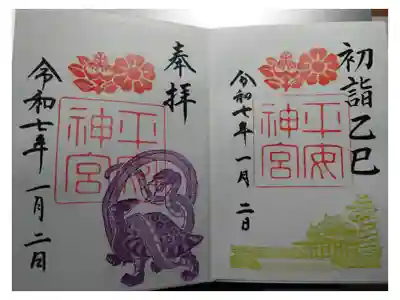 初詣乙巳
平安
神宮
令和七年一月二日
奉拝
平安
神宮
令和七年一月二日